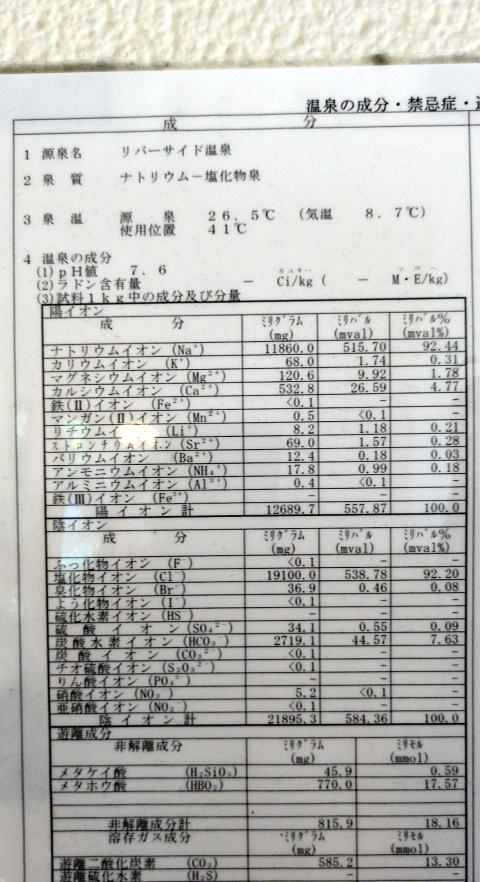 温泉の成分・禁忌症・
成 分
1 源泉名 リバーサイド温泉
2 泉 質 ナトリウム－塩化物泉
3 泉 温 源 泉 26.5℃ (気温 8.7℃)
使用位置 41℃
4 温泉の成分
(1)pH値 7.6
(2)ラドン含有量 － Ci/kg ( － M・E/kg)
(3)試料1kg中の成分及び分量
陽イオン
成 分 ﾐﾘｸﾞﾗﾑ (mg) ﾐﾘﾊﾞﾙ (mval) ﾐﾘﾊﾞﾙ% (mval%)
ナトリウムイオン (Na⁺) 11860.0 515.70 92.44
カリウムイオン (K⁺) 68.0 1.74 0.31
マグネシウムイオン (Mg²⁺) 120.6 9.92 1.78
カルシウムイオン (Ca²⁺) 532.8 26.59 4.77
鉄(Ⅱ)イオン (Fe²⁺) <0.1 － －
マンガン(Ⅱ)イオン (Mn²⁺) 0.5 <0.1 －
リチウムイオン (Li⁺) 8.2 1.18 0.21
ストロンチウムイオン (Sr²⁺) 69.0 1.57 0.28
バリウムイオン (Ba²⁺) 12.4 0.18 0.03
アンモニウムイオン (NH₄⁺) 17.8 0.99 0.18
アルミニウムイオン (Al³⁺) 0.4 <0.1 －
鉄(Ⅲ)イオン (Fe³⁺) － － －
陽イオン計 12689.7 557.87 100.0
陰イオン
成 分 ﾐﾘｸﾞﾗﾑ (mg) ﾐﾘﾊﾞﾙ (mval) ﾐﾘﾊﾞﾙ% (mval%)
ふっ化物イオン (F⁻) <0.1 － －
塩化物イオン (Cl⁻) 19100.0 538.78 92.20
臭化物イオン (Br⁻) 36.9 0.46 0.08
よう化物イオン (I⁻) <0.1 － －
硫化水素イオン (HS⁻) － － －
硫酸イオン (SO₄²⁻) 34.1 0.55 0.09
炭酸水素イオン (HCO₃⁻) 2719.1 44.57 7.63
炭酸イオン (CO₃²⁻) <0.1 － －
チオ硫酸イオン (S₂O₃²⁻) <0.1 － －
りん酸イオン (PO₄³⁻) － － －
硝酸イオン (NO₃⁻) 5.2 <0.1 －
亜硝酸イオン (NO₂⁻) <0.1 － －
陰イオン計 21895.3 584.36 100.0
遊離成分
非解離成分 ﾐﾘｸﾞﾗﾑ (mg) ﾐﾘﾓﾙ (mmol)
メタケイ酸 (H₂SiO₃) 45.9 0.59
メタホウ酸 (HBO₂) 770.0 17.57
非解離成分計 815.9 18.16
溶存ガス成分 ﾐﾘｸﾞﾗﾑ (mg) ﾐﾘﾓﾙ (mmol)
遊離二酸化炭素 (CO₂) 585.2 13.30
遊離硫化水素 (H₂S) － －